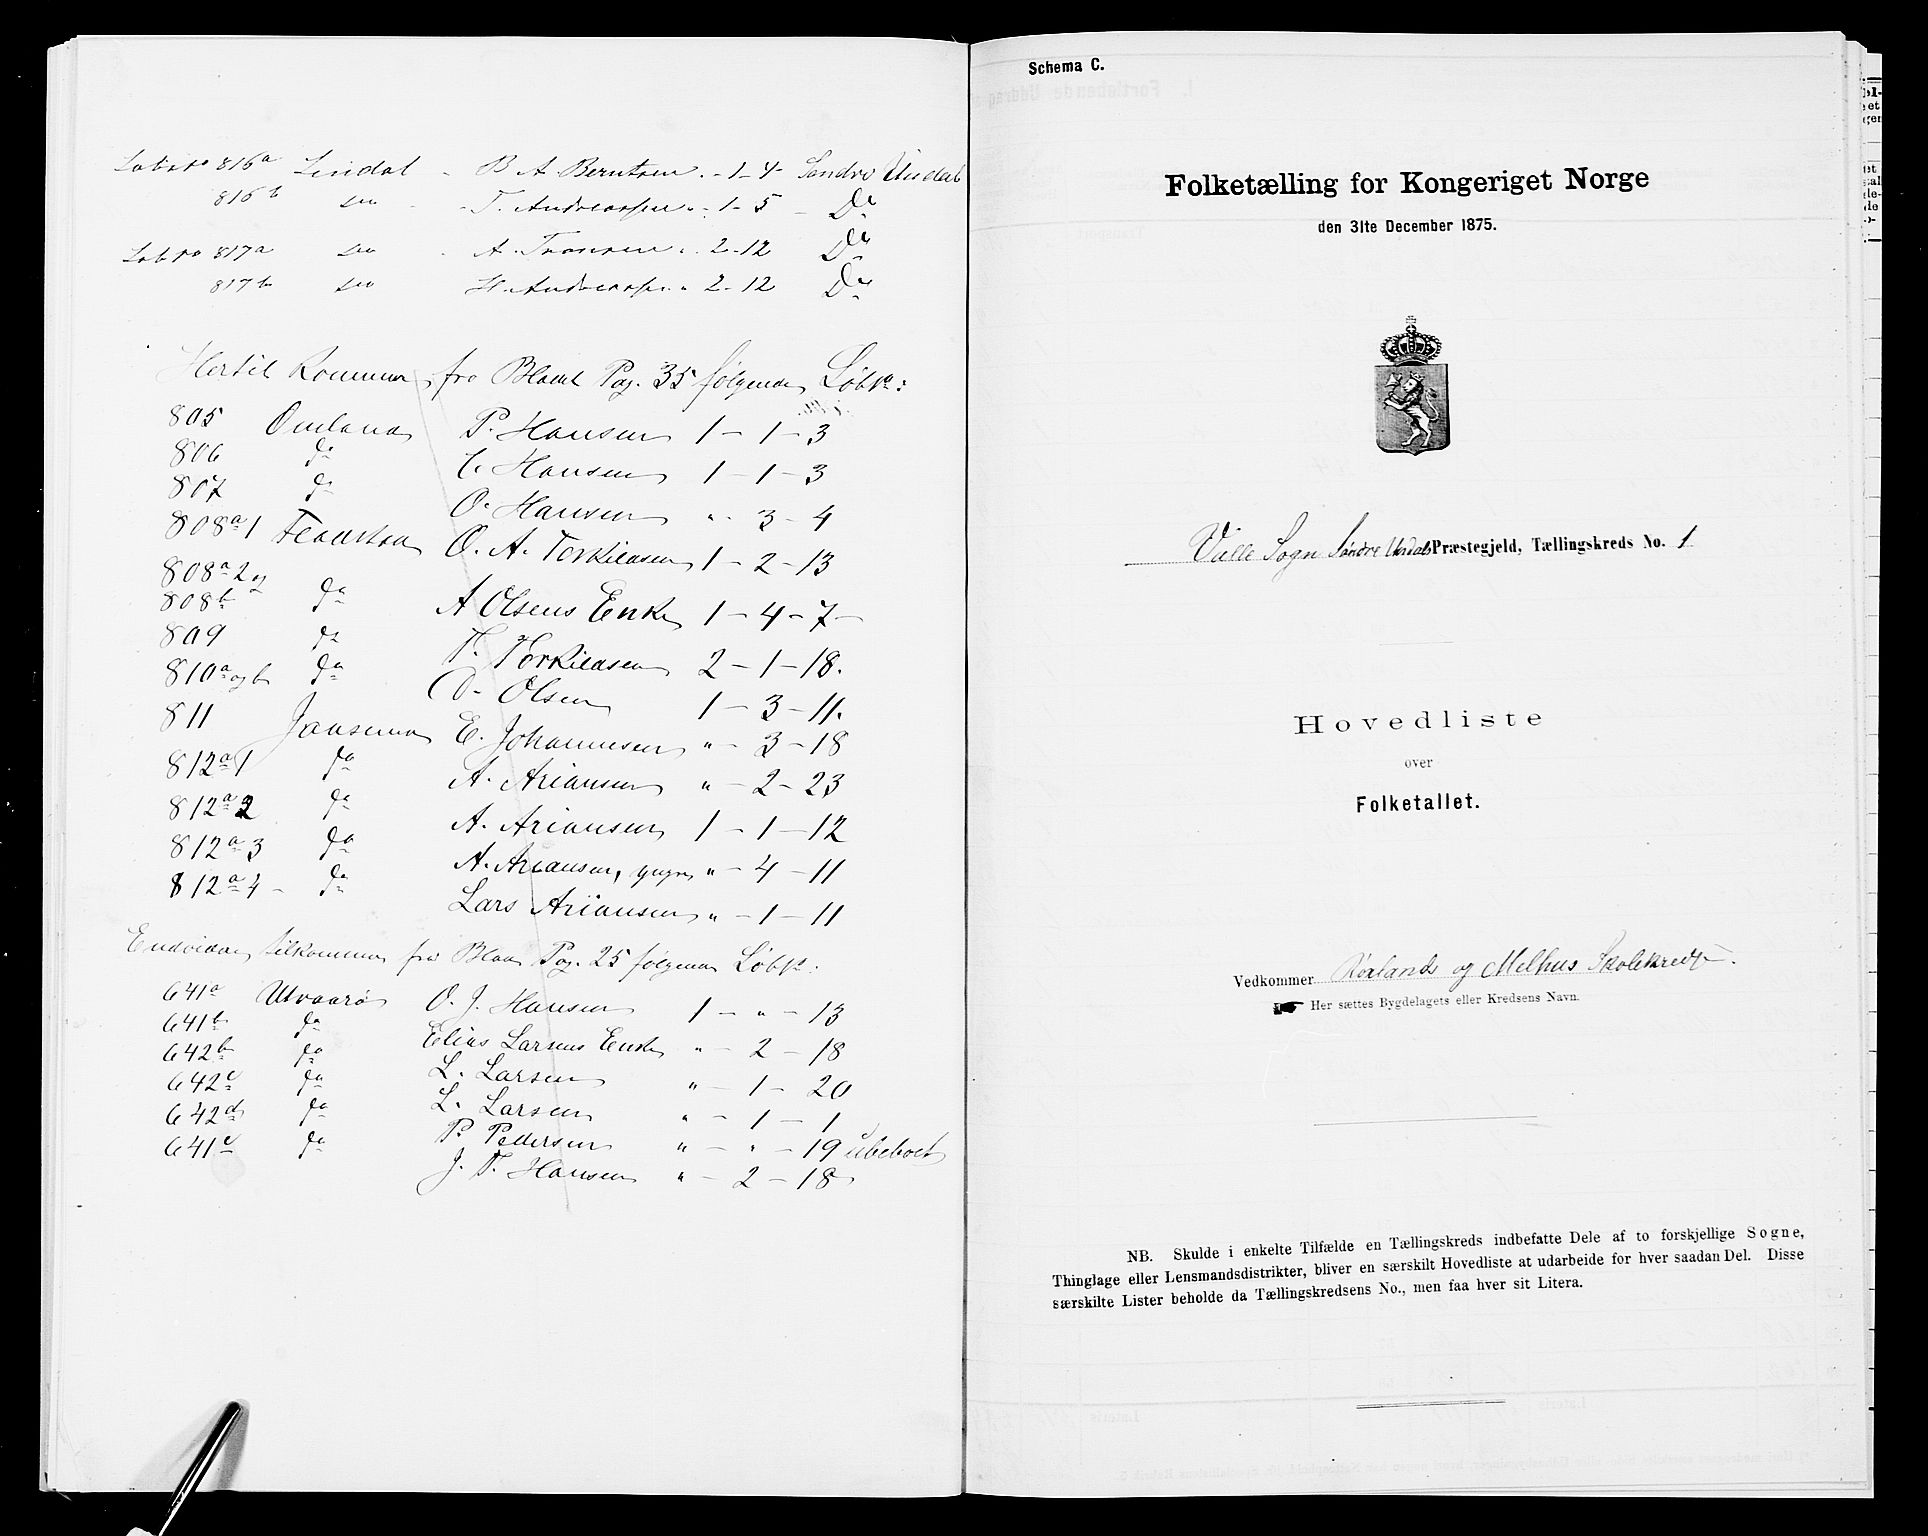 Løbno 816a Lindal - B A Berntsen . - 1 - 4 - Søndre Undal
816b do - T. Andreassen " - 1 - 5 - Do
Løbno 817a do - A. Tronsen " 2 - 12 Do
817b do H. Andreassen " 2 - 12 Do
Hertil Kommer fra Bladet Pag. 35 følgende Løbno:
805 Omland P. Hansen 1 - 1 - 3
806 do Hansen 1 - 1 - 3
807 do O. Hansen " 3 - 4
808a1 O. A. Torkildsen 1 - 2 - 13
808a2 og
808b do A Olsens Enke 1 - 4 - 7 -
809 do T. Torkildsen 2 - 1 - 18.
810a og b do O. Olsen 1 - 3 - 11.
811 E. Johannesen " - 3 - 18
812a1 do A. Ariansen " - 2 - 23
812a2 do A. Ariansen 1 - 1 - 12
812a3 do A. Ariansen, yngre " - 4 - 11
812a4 - do Lars Ariansen " - 1 - 11
Endvidere tilkommer fra Blad Pag. 25 følgende Løbno:
641a Utvaarø O. J. Hansen 1 - " - 13
641b do Elias Larsens Enke " - 2 - 18
642b do L. Larsen " - 1 - 20
642c do L. Larsen " - 1 - 1
642d do P. Pedersen " - " - 19 ubeboet
641c do J. T. Hansen " - 2 - 18
Schema C.
Folketælling for Kongeriget Norge
den 31te December 1875.
Valle Sogn Søndre Undals Præstegjeld, Tællingskreds No. 1
Hovedliste
over
Folketallet.
Vedkommer og Melhus Skolekreds.
Her sættes Bygdelagets eller Kredsens Navn.
NB. Skulde i enkelte Tilfælde en Tællingskreds indbefatte Dele af to forskjellige Sogne,
Thinglage eller Lensmandsdistrikter, bliver en særskilt Hovedliste at udarbeide for hver saadan Del. Disse
særskilte Lister beholde da Tællingskredsens No., men faa hver sit Litera.